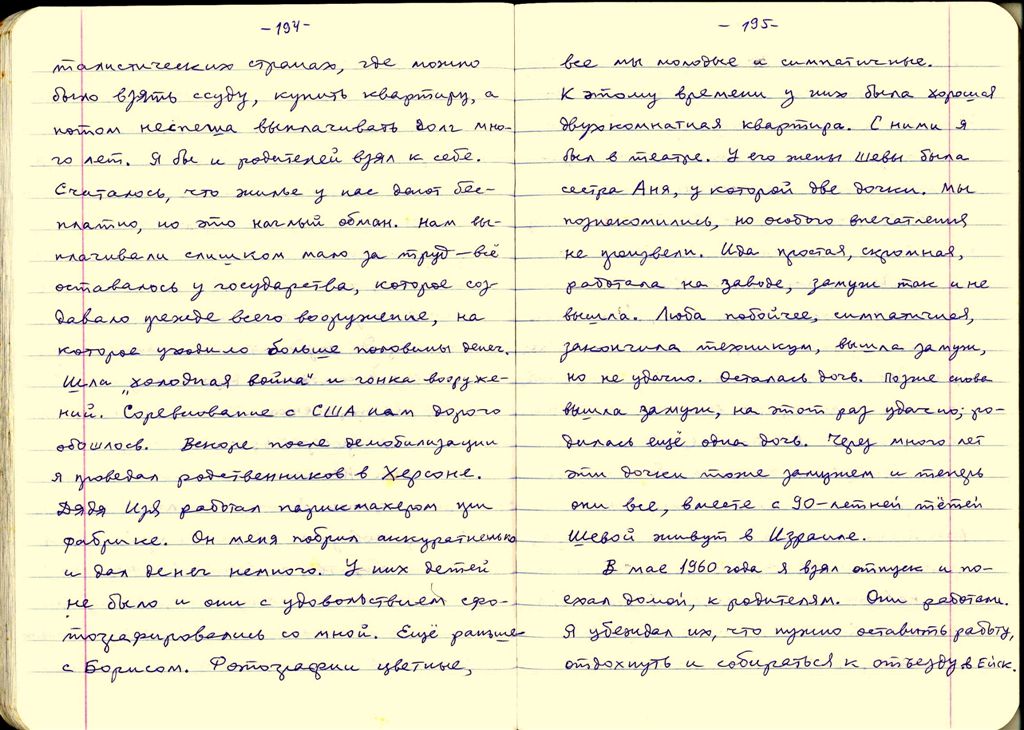 -194-
талистических странах, где можно
было взять ссуду, купить квартиру, а
потом неспеша выплачивать долг мно-
го лет. Я бы и родителей взял к себе.
Считалось, что жилье у нас дают бес-
платно, но это наглый обман. Нам вы-
плачивали слишком мало за труд — всё
оставалось у государства, которое соз-
давало прежде всего вооружение, на
которое уходило больше половины денег.
Шла „холодная война" и гонка вооруже-
ний. Соревнование с США нам дорого
обошлось. Вскоре после демобилизации
я проведал родственников в Херсоне.
Дядя Изя работал парикмахером при
фабрике. Он меня побрил аккуратненько
и дал денег немного. У них детей
не было и они с удовольствием сфо-
тографировались со мной. Ещё раньше
с Борисом. Фотографии цветные,
-195-
все мы молодые и симпатичные.
К этому времени у них была хорошая
двухкомнатная квартира. С ними я
был в театре. У его жены Шевы была
сестра Аня, у которой две дочки. Мы
познакомились, но особого впечатления
не произвели. Ида простая, скромная,
работала на заводе, замуж так и не
вышла. Люба побойчее, симпатичная,
закончила техникум, вышла замуж,
но не удачно. Осталась дочь. Позже снова
вышла замуж, на этот раз удачно; ро-
дилась ещё одна дочь. Через много лет
эти дочки тоже замужем и теперь
они все, вместе с 90-летней тётей
Шевой живут в Израиле.
В мае 1960 года я взял отпуск и по-
ехал домой, к родителям. Они работали.
Я убеждал их, что нужно оставить работу,
отдохнуть и собираться к отъезду в Ейск.